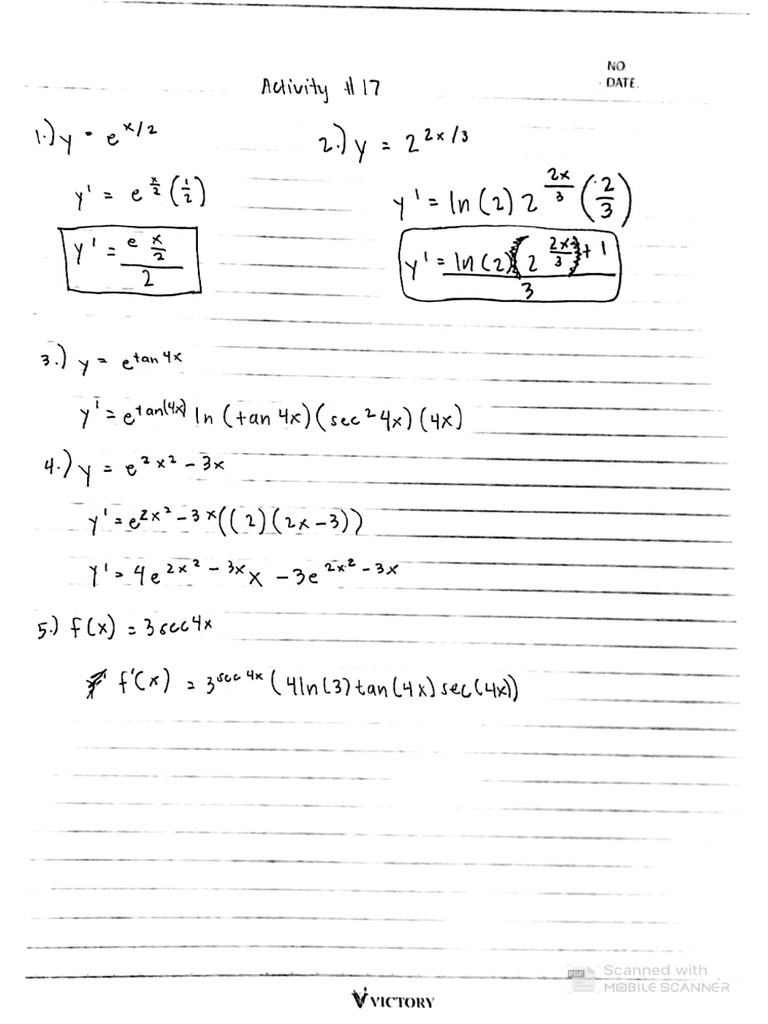 NO.
DATE.
Activity # 17
1.) y = e^x/2
2.) y = 2^2x/3
y' = e^(x/2) (1/2)
y' = ln(2) 2^(2x/3) (2/3)
y' = e^(x/2) / 2
y' = ln(2) (2^(2x/3)) + 1 / 3
3.) y = e^tan 4x
y' = e^tan(4x) ln (tan 4x) (sec² 4x) (4x)
4.) y = e^2x² - 3x
y' = e^2x² - 3x ((2)(2x - 3))
y' = 4e^2x² - 3x x - 3e^2x² - 3x
5.) f(x) = 3 sec 4x
f'(x) = 3^sec 4x (4ln(3) tan(4x) sec(4x))
PDF
Scanned with
MOBILE SCANNER
VICTORY